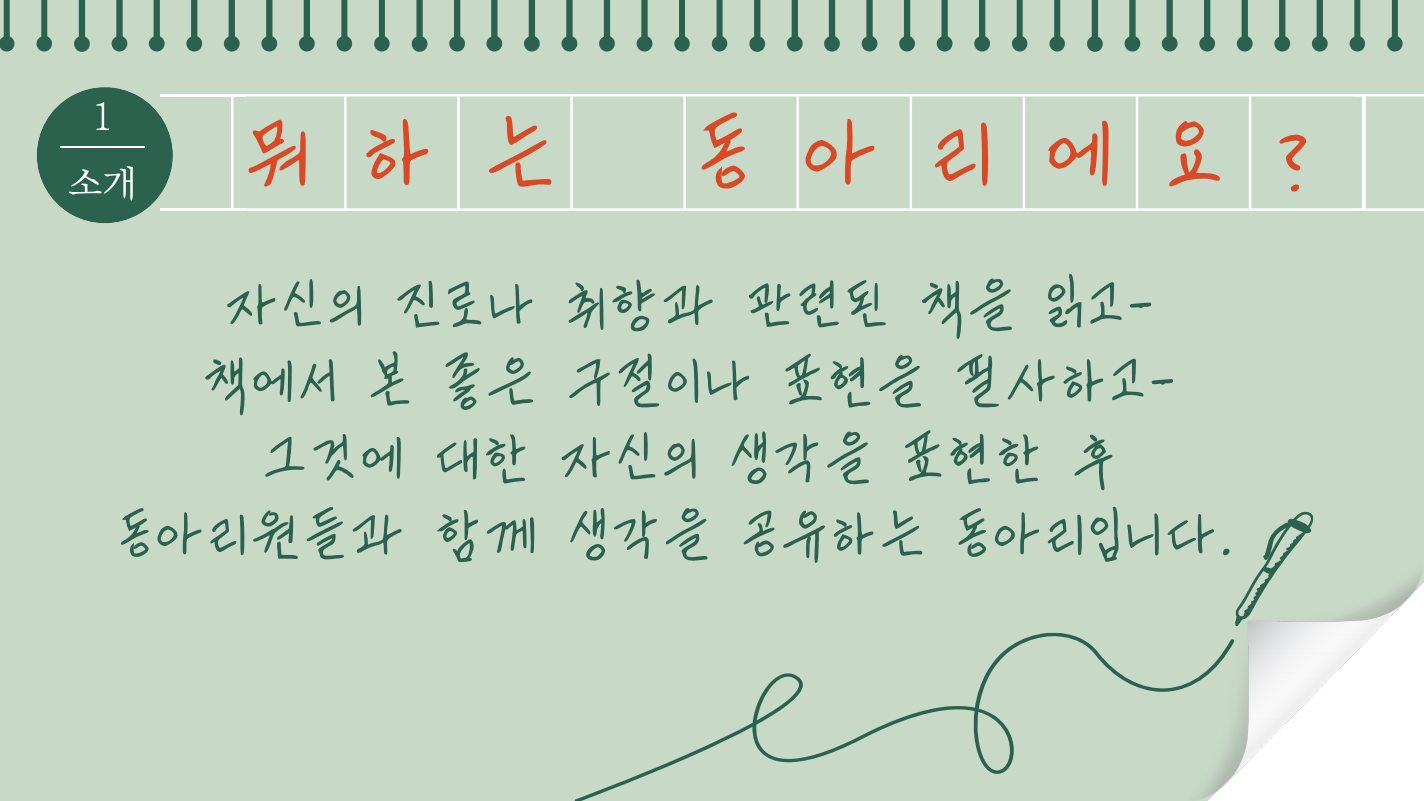 1
소개
뭐하는 동아리에요?
자신의 진로나 취향과 관련된 책을 읽고-
책에서 본 좋은 구절이나 표현을 필사하고-
그것에 대한 자신의 생각을 표현한 후
동아리원들과 함께 생각을 공유하는 동아리입니다.